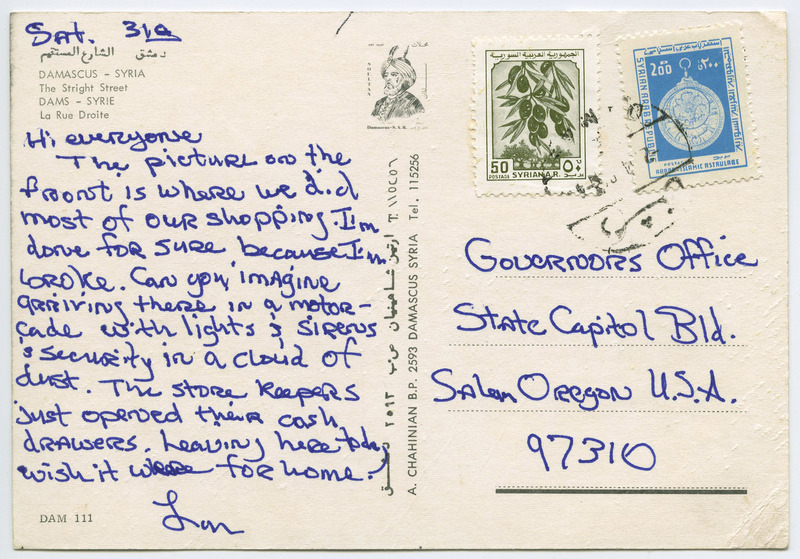 Sat. 31st
دمشق الشارع المستقيم
DAMASCUS - SYRIA
The Stright Street
DAMS - SYRIE
La Rue Droite
Hi everyone
The picture on the
front is where we did
most of our shopping. I'm
done for sure because I'm
broke. Can you imagine
arriving there in a motor-
cade with lights & sirens
& security in a cloud of
dust. The store keepers
just opened their cash
drawers. Leaving here today
wish it were for home.
DAM 111
SULTAN
Damascus-S.A.R.
A. CHAHINIAN B.P. 2593 DAMASCUS SYRIA Tel. 115256
الجمهورية العربية السورية
50
٥٠
POSTAGE
SYRIAN A.R.
SYRIAN ARAB REPUBLIC
200
٢٠٠
الجمهورية العربية السورية
POSTAGE
ARABO-ISLAMIC ASTROLABE
Governors Office
State Capitol Bld.
Salem Oregon U.S.A.
97310